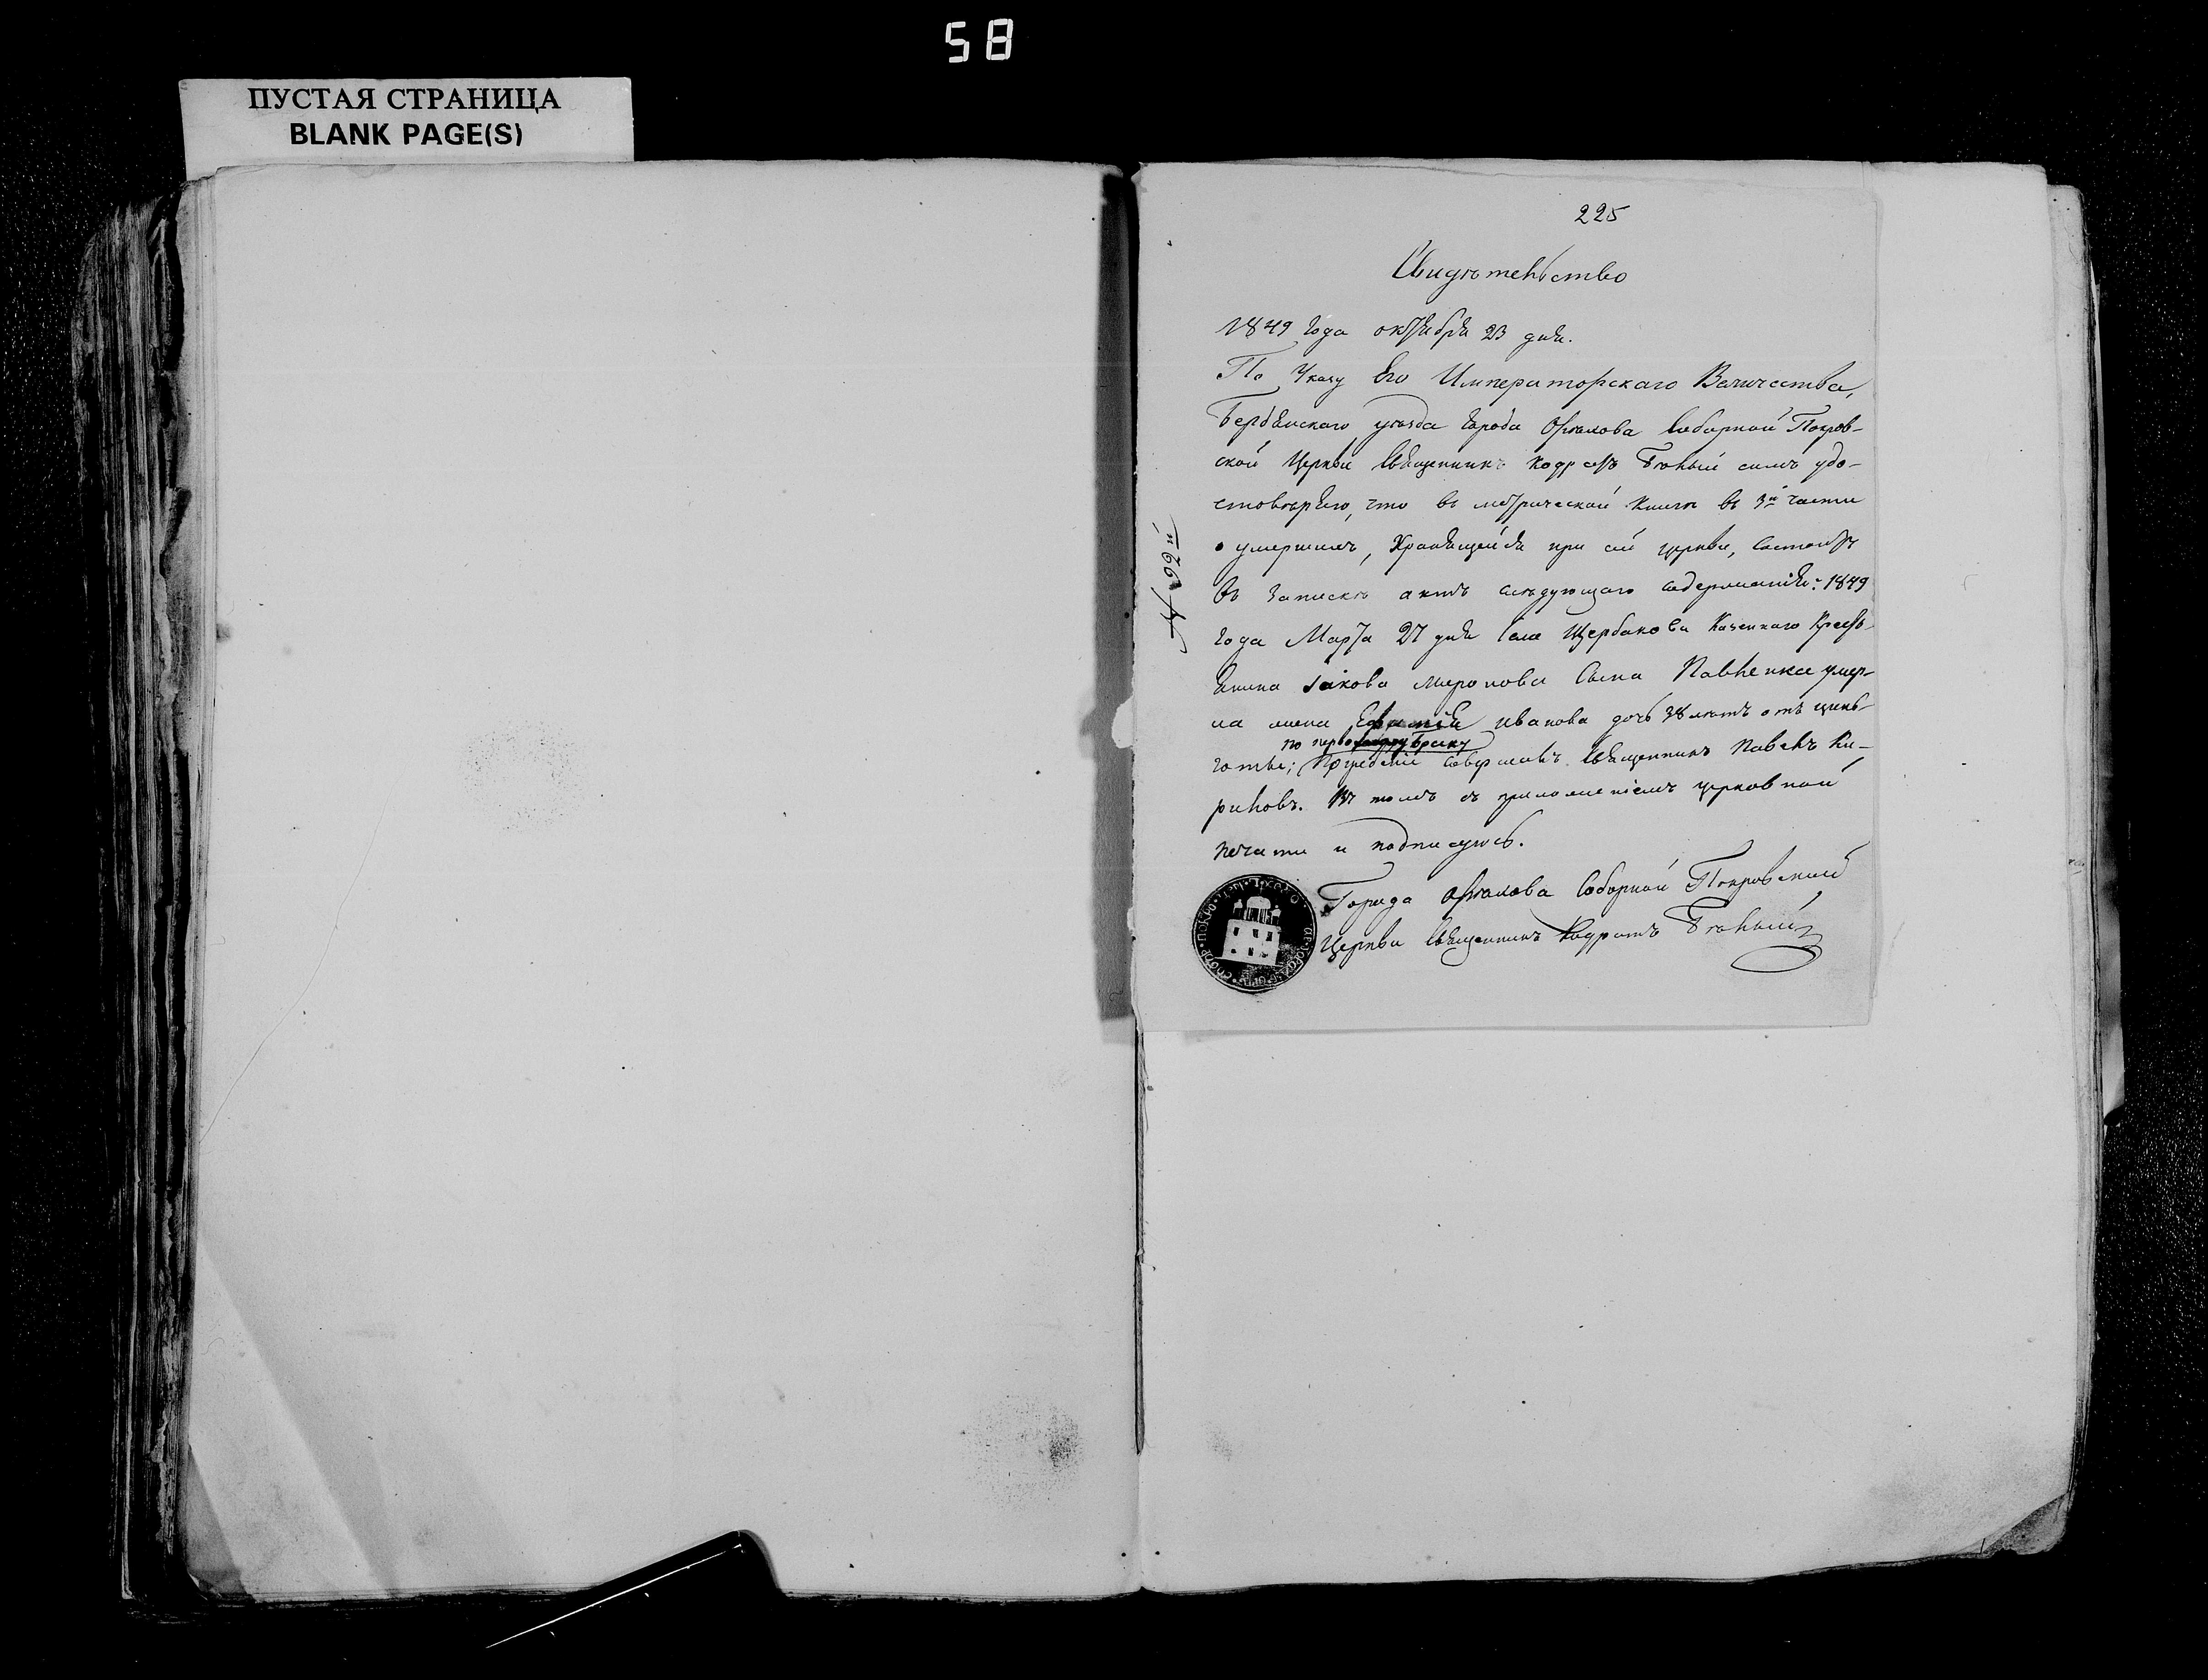 58
ПУСТАЯ СТРАНИЦА
BLANK PAGE(S)
225
Свидѣтельство
1849 года октября 23 дня.
По Указу Его Императорскаго Величества,
Бердянскаго уѣзда города Орѣхова Соборной Покров-
ской Церкви Священникъ Кодратъ Бѣлый симъ удо-
стовѣряю, что въ метрической книгѣ въ 3й части
о умершихъ, хранящейся при сей церкви, состоитъ
въ запискѣ актъ слѣдующаго содержанія: 1849
года Марта 27 дня села Щербаковки Казеннаго Кресть-
янина Іакова Миронова Сына Павленка умер-
ла жена Евфимія Иванова дочь 38 лѣтъ отъ цынь-
по первому браку
готы; Погребеніе совершилъ Священникъ Павелъ Ки-
риловъ. Въ томъ съ приложеніемъ церковной
печати и подписуюсь.
Города Орѣхова Соборной Покровской
Церкви Священникъ Кодратъ Бѣлый
№ 99й